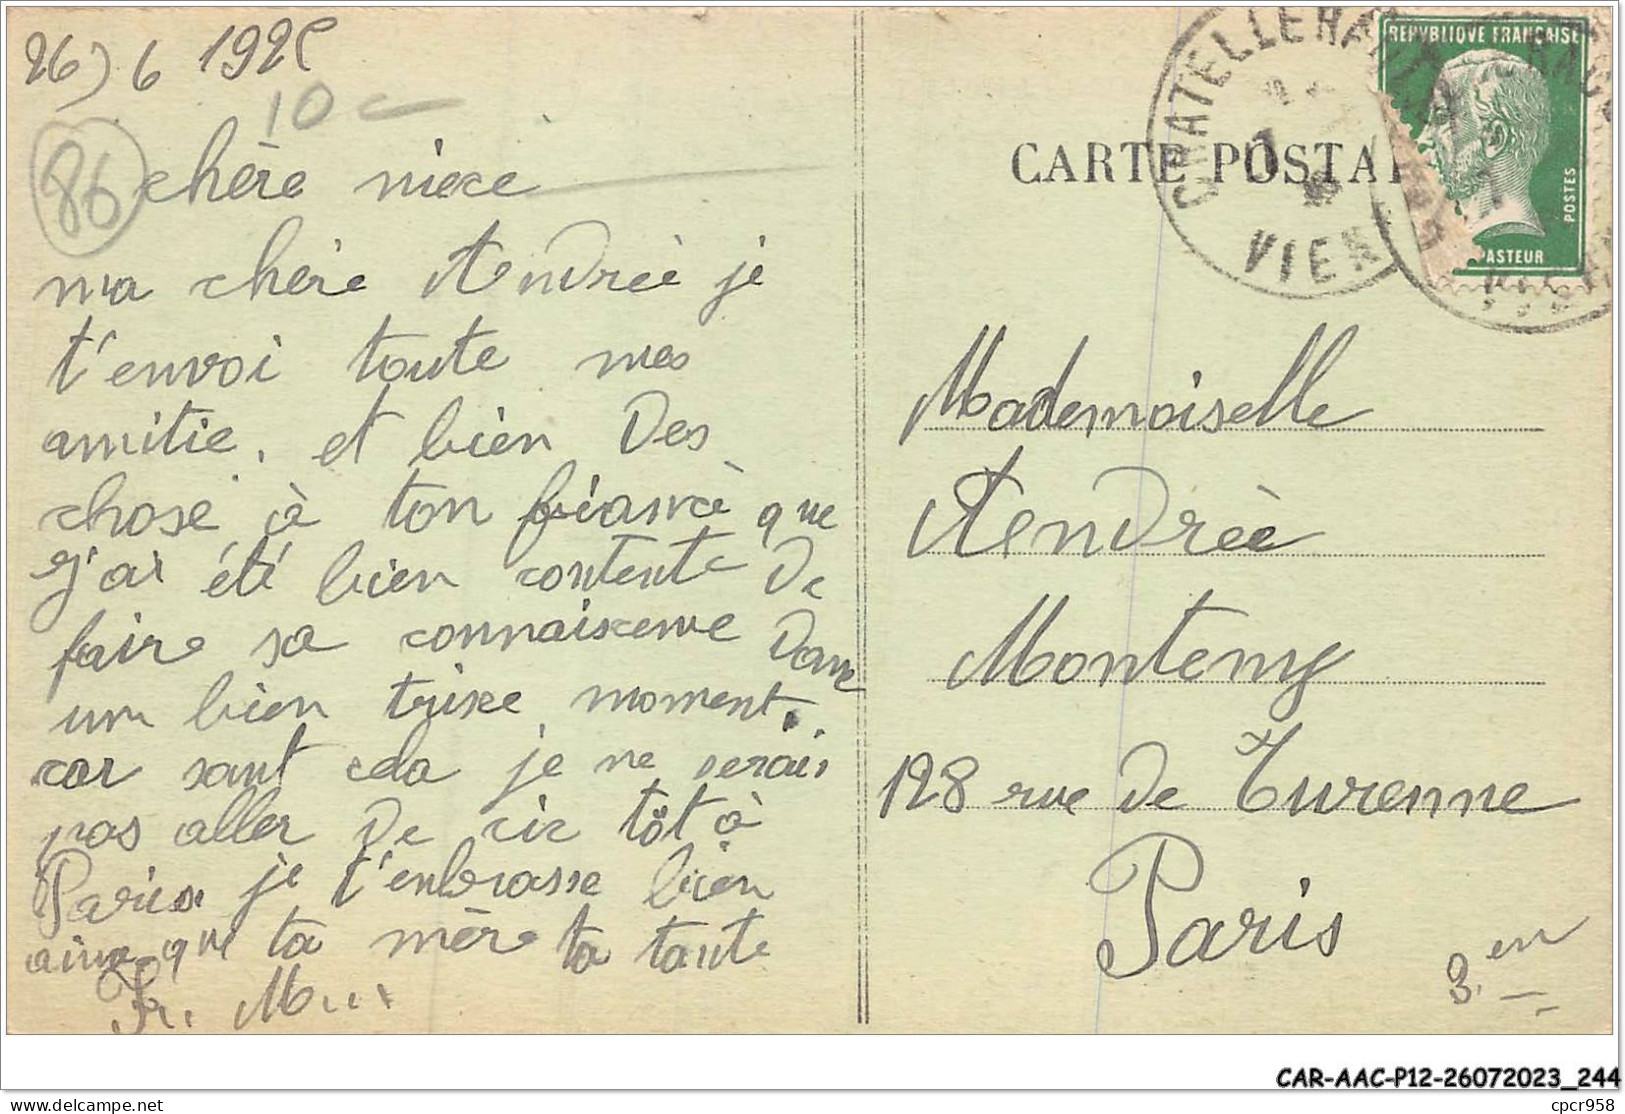 26) 6 192
10
86
chère niece
ma chère Andrèè je
t'envoi toute mes
amitie. et bièn Des
chose à ton fiéancè que
j'ai été bien contente De
faire sa connaiscence Dans
un bièn trixe moment.
car sant cela je ne serais
pas aller De sic tôt à
Paris je t'enbrasse bièn
ainse que ta mère ta tante
Fr. M...
CARTE POSTA
CHATELLERA
VIEN
REPUBLIQUE FRANCAISE
POSTES
PASTEUR
Mademoiselle
Andrèè
Monteny
128 rue de Turenne
Paris
3. em
CAR-AAC-P12-26072023_244
delcampe.net
cpcr958